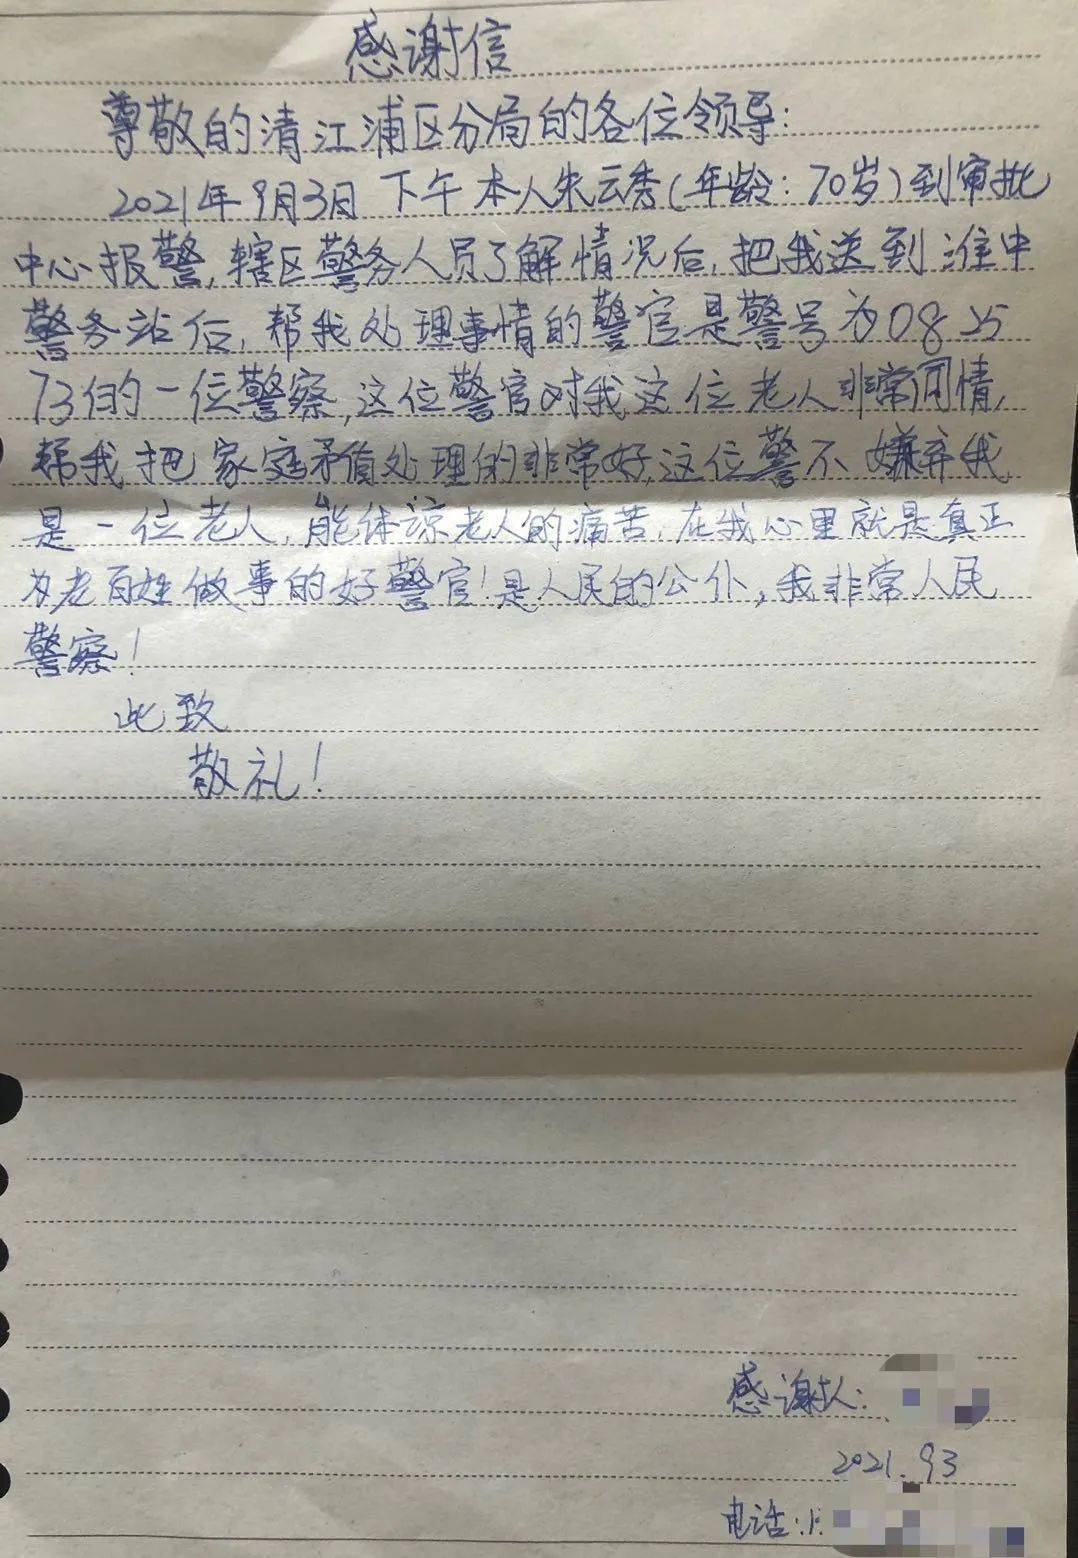 感谢信
尊敬的清江浦区分局的各位领导:
2021年9月3日下午本人朱云秀(年龄:70岁)到审批
中心报警,辖区警务人员了解情况后,把我送到淮中
警务站后,帮我处理事情的警官是警号为0825
73的一位警察,这位警官对我这位老人非常同情,
帮我把家庭矛盾处理的非常好,这位警不嫌弃我
是一位老人,能体谅老人的痛苦,在我心里就是真正
为老百姓做事的好警官!是人民的公仆,我非常人民
警察!
此致
敬礼!
感谢人:
2021.93
电话:1